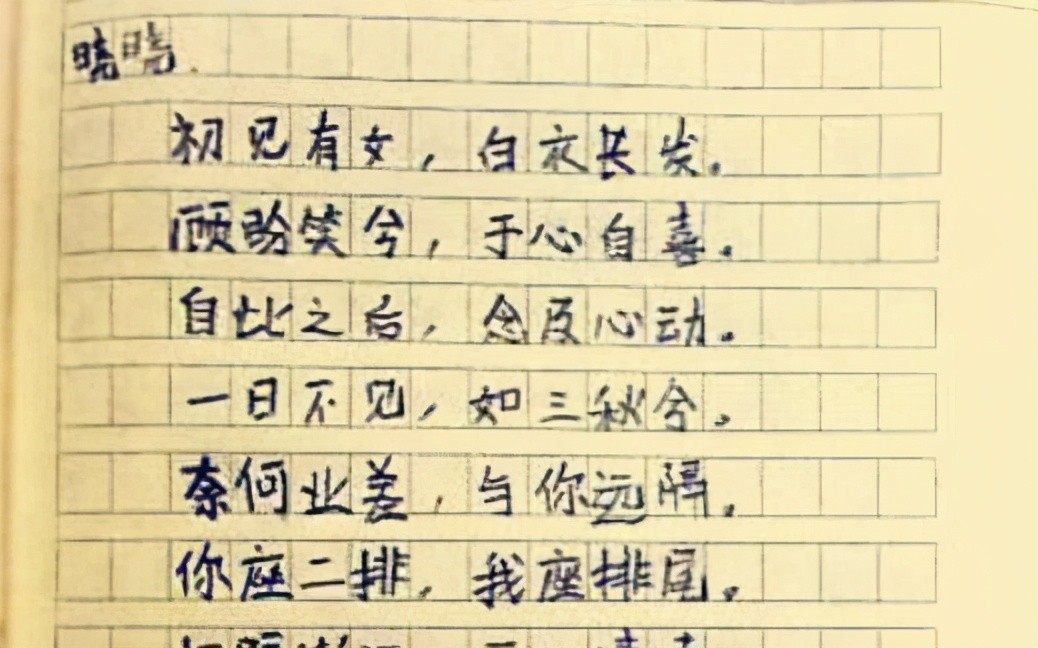 晓晓.
初见有女，白衣长发。
顾盼笑兮，于心自喜。
自此之后，念及心动。
一日不见，如三秋兮。
奈何业差，与你远隔。
你座二排，我座排尾。